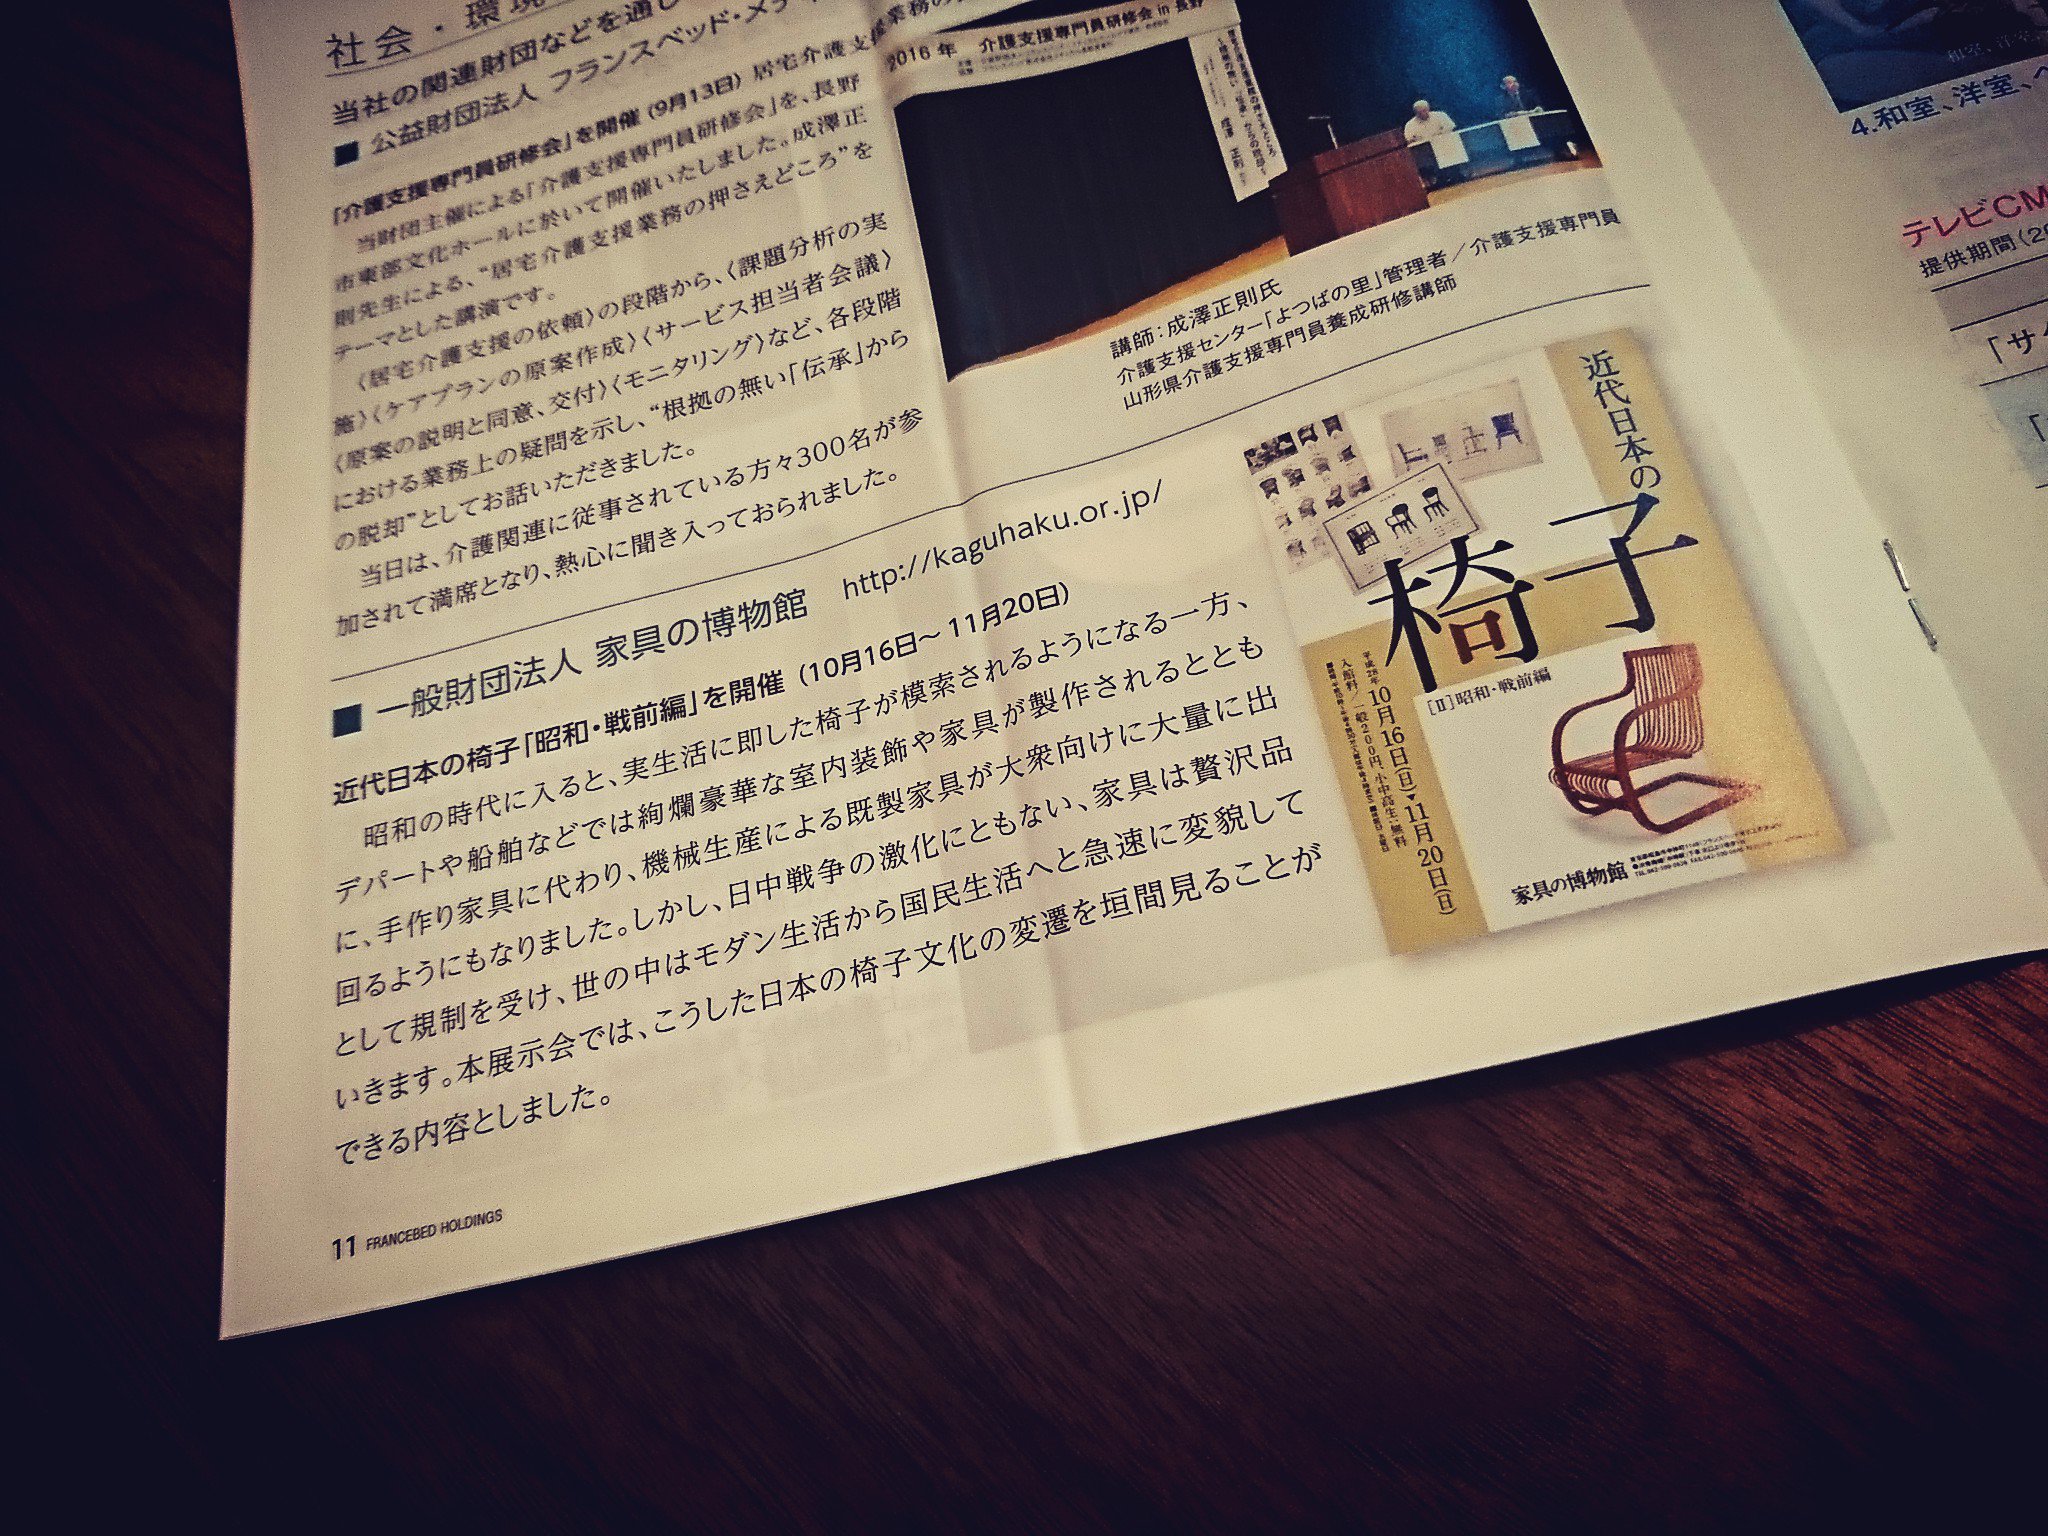 社会・環境
当社の関連財団などを通じ
■ 公益財団法人 フランスベッド・メディ
「介護支援専門員研修会」を開催(9月13日)
当財団主催による「介護支援専門員研修会」を、長野
市東部文化ホールに於いて開催いたしました。成澤正
則先生による、“居宅介護支援業務の押さえどころ”を
テーマとした講演です。
〈居宅介護支援の依頼〉の段階から、〈課題分析の実
施〉〈ケアプランの原案作成〉〈サービス担当者会議〉
〈原案の説明と同意、交付〉〈モニタリング〉など、各段階
における業務上の疑問を示し、“根拠の無い「伝承」から
の脱却”としてお話いただきました。
当日は、介護関連に従事されている方々300名が参
加されて満席となり、熱心に聞き入っておられました。
居宅介護支援業務の
2016年 介護支援専門員研修会 in 長野
成澤 正則
講師:成澤正則氏
介護支援センター「よつばの里」管理者/介護支援専門員
山形県介護支援専門員養成研修講師
■ 一般財団法人 家具の博物館 http://kaguhaku.or.jp/
近代日本の椅子「昭和・戦前編」を開催(10月16日~11月20日)
昭和の時代に入ると、実生活に即した椅子が模索されるようになる一方、
デパートや船舶などでは絢爛豪華な室内装飾や家具が製作されるととも
に、手作り家具に代わり、機械生産による既製家具が大衆向けに大量に出
回るようにもなりました。しかし、日中戦争の激化にともない、家具は贅沢品
として規制を受け、世の中はモダン生活から国民生活へと急速に変貌して
いきます。本展示会では、こうした日本の椅子文化の変遷を垣間見ることが
できる内容としました。
近代日本の
椅子
[II]昭和・戦前編
平成28年 10月16日(日)▶11月20日(日)
入館料/一般200円、小中高生:無料
家具の博物館
11 FRANCEBED HOLDINGS
4.和室、洋室、
テレビCM
提供期間(20
「サ